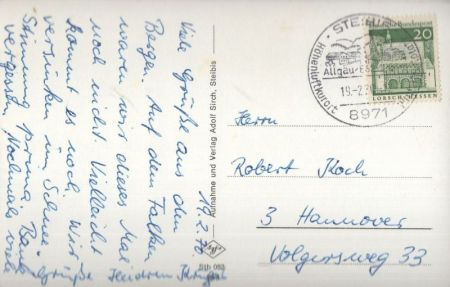 19.2.70
Viele Grüße aus den
Bergen. Auf den Falken
waren wir dieses Mal
noch nicht. Vielleicht
kommt es noch. Wir
versinken im Schnee.
Stimmung prima,
vergessen. Nochmals viele
Grüße Heidrun
Aufnahme und Verlag Adolf Sirch, Steibis
Stb 053
STEIBIS
Höhenluftkurort
Allgäu
19.-2.70
8971
Deutsche Bundespost
20
LORSCH/HESSEN
Herrn
Robert Koch
3 Hannover
Volgersweg 33